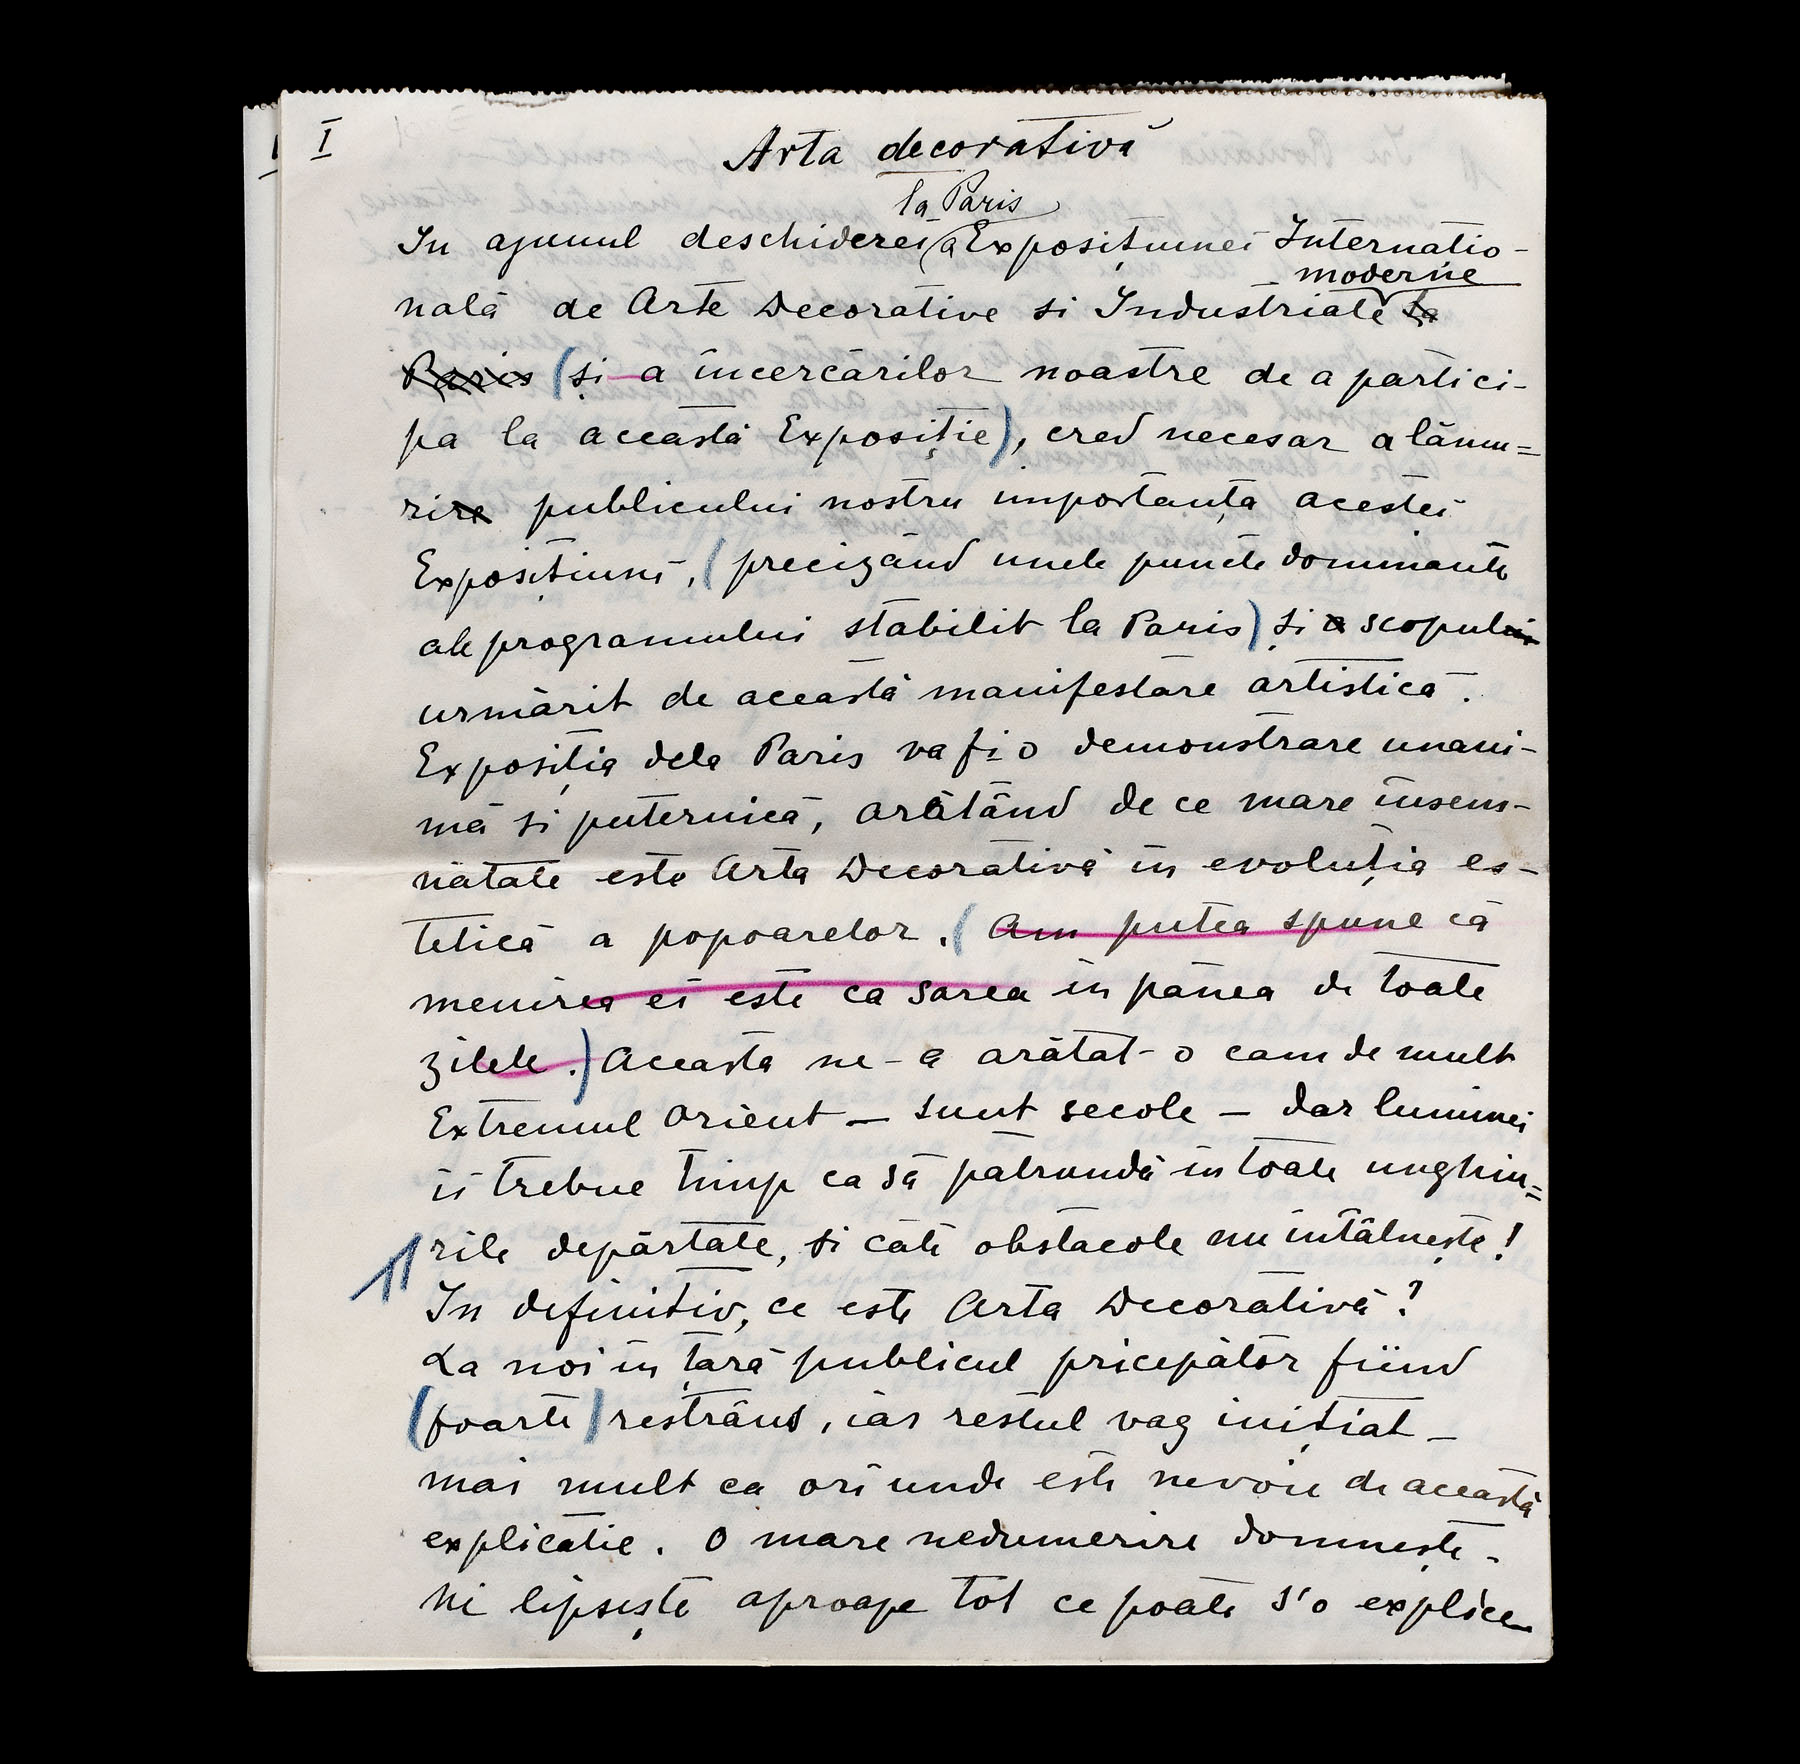 I
Arta decorativă
la Paris
In ajunul deschiderei a Exposițiunei Internatio-
moderne
nală de Arte Decorative si Industriale la
Paris (și a încercărilor noastre de a partici-
pa la această Exposiție), cred necesar a lămu=
rire publicului nostru importanța acestei
Exposițiuni, (precizând unele puncte dominante
ale programului stabilit la Paris) și a scopului
urmărit de această manifestare artistică.
Exposiția dela Paris va fi o demonstrare unani-
mă si puternică, arătând de ce mare însem-
nătate este Arta Decorativă în evoluția es-
tetică a popoarelor. (Am putea spune că
menirea ei este ca sarea in pânea de toate
zilele.) Aceasta ne-a arătat-o cam de mult
Extremul Orient — sunt secole — dar luminei
îi trebue timp ca să pătrundă in toate unghiu=
rile depărtate, si câte obstacole nu întâlnește!
In definitiv, ce este Arta Decorativă?
La noi in țară publicul pricepător fiind
(foarte) restrâns, iar restul vag inițiat -
mai mult ca ori unde este nevoie de această
explicatie. O mare nedumerire domnește -
ni lipsește aproape tot ce poate s'o explice